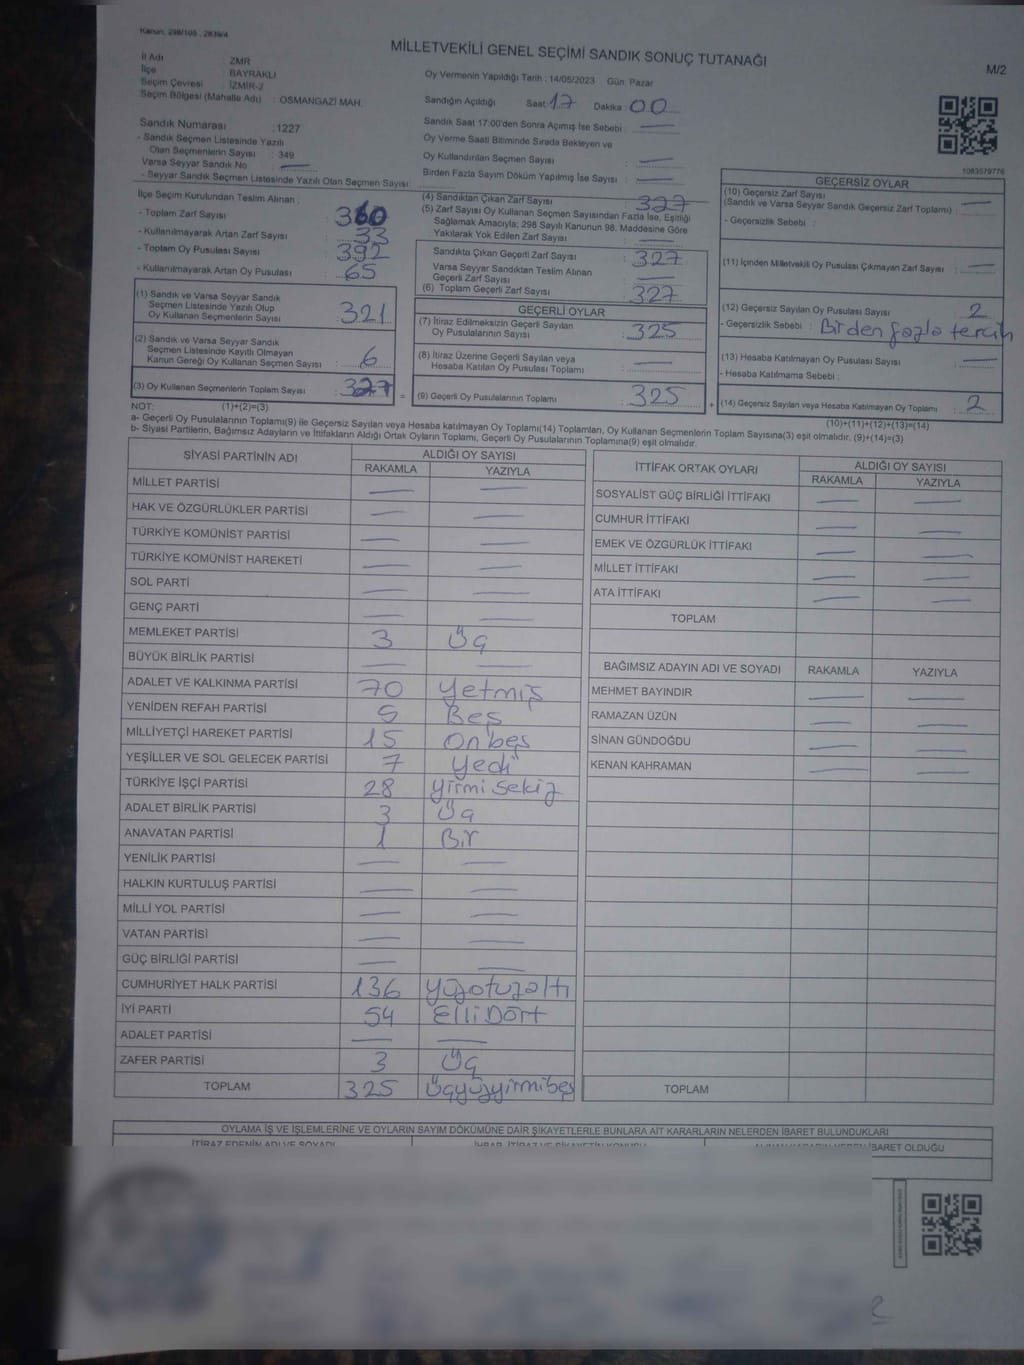 Kanun, 298/105 , 2839/4
MİLLETVEKİLİ GENEL SEÇİMİ SANDIK SONUÇ TUTANAĞI
M/2
İl Adı : ZMR
İlçe : BAYRAKLI
Seçim Çevresi : İZMİR-2
Seçim Bölgesi (Mahalle Adı) : OSMANGAZİ MAH.
Oy Vermenin Yapıldığı Tarih : 14/05/2023 Gün: Pazar
Sandığın Açıldığı Saat: 17 Dakika : 00
Sandık Saat 17:00'den Sonra Açılmış İse Sebebi : —
Oy Verme Saati Bitiminde Sırada Bekleyen ve
Oy Kullandırılan Seçmen Sayısı : —
Birden Fazla Sayım Döküm Yapılmış İse Sayısı : —
Sandık Numarası : 1227
- Sandık Seçmen Listesinde Yazılı
Olan Seçmenlerin Sayısı : 349
Varsa Seyyar Sandık No : —
- Seyyar Sandık Seçmen Listesinde Yazılı Olan Seçmen Sayısı:
1083579776
İlçe Seçim Kurulundan Teslim Alınan :
- Toplam Zarf Sayısı : 360
- Kullanılmayarak Artan Zarf Sayısı : 33
- Toplam Oy Pusulası Sayısı : 392
- Kullanılmayarak Artan Oy Pusulası : 65
(1) Sandık ve Varsa Seyyar Sandık
Seçmen Listesinde Yazılı Olup
Oy Kullanan Seçmenlerin Sayısı : 321
(2) Sandık ve Varsa Seyyar Sandık
Seçmen Listesinde Kayıtlı Olmayan
Kanun Gereği Oy Kullanan Seçmen Sayısı : 6
(3) Oy Kullanan Seçmenlerin Toplam Sayısı : 327 =
(4) Sandıktan Çıkan Zarf Sayısı : 327
(5) Zarf Sayısı Oy Kullanan Seçmen Sayısından Fazla İse, Eşitliği
Sağlamak Amacıyla; 298 Sayılı Kanunun 98. Maddesine Göre
Yakılarak Yok Edilen Zarf Sayısı : —
Sandıkta Çıkan Geçerli Zarf Sayısı : 327
Varsa Seyyar Sandıktan Teslim Alınan
Geçerli Zarf Sayısı : —
(6) Toplam Geçerli Zarf Sayısı : 327
GEÇERLİ OYLAR
(7) İtiraz Edilmeksizin Geçerli Sayılan
Oy Pusulalarının Sayısı : 325
(8) İtiraz Üzerine Geçerli Sayılan veya
Hesaba Katılan Oy Pusulası Toplamı : —
(9) Geçerli Oy Pusulalarının Toplamı : 325 +
GEÇERSİZ OYLAR
(10) Geçersiz Zarf Sayısı
(Sandık ve Varsa Seyyar Sandık Geçersiz Zarf Toplamı) : —
- Geçersizlik Sebebi :
(11) İçinden Milletvekili Oy Pusulası Çıkmayan Zarf Sayısı : —
(12) Geçersiz Sayılan Oy Pusulası Sayısı : 2
- Geçersizlik Sebebi : Birden fazla tercih
(13) Hesaba Katılmayan Oy Pusulası Sayısı : —
- Hesaba Katılmama Sebebi :
(14) Geçersiz Sayılan veya Hesaba Katılmayan Oy Toplamı : 2
NOT: (1)+(2)=(3) (10)+(11)+(12)+(13)=(14)
a- Geçerli Oy Pusulalarının Toplamı(9) ile Geçersiz Sayılan veya Hesaba katılmayan Oy Toplamı(14) Toplamları, Oy Kullanan Seçmenlerin Toplam Sayısına(3) eşit olmalıdır. (9)+(14)=(3)
b- Siyasi Partilerin, Bağımsız Adayların ve İttifakların Aldığı Ortak Oyların Toplamı, Geçerli Oy Pusulalarının Toplamına(9) eşit olmalıdır.
SİYASİ PARTİNİN ADI ALDIĞI OY SAYISI
RAKAMLA YAZIYLA
MİLLET PARTİSİ — —
HAK VE ÖZGÜRLÜKLER PARTİSİ — —
TÜRKİYE KOMÜNİST PARTİSİ — —
TÜRKİYE KOMÜNİST HAREKETİ — —
SOL PARTİ — —
GENÇ PARTİ — —
MEMLEKET PARTİSİ 3 Üç
BÜYÜK BİRLİK PARTİSİ — —
ADALET VE KALKINMA PARTİSİ 70 Yetmiş
YENİDEN REFAH PARTİSİ 5 Beş
MİLLİYETÇİ HAREKET PARTİSİ 15 Onbeş
YEŞİLLER VE SOL GELECEK PARTİSİ 7 Yedi
TÜRKİYE İŞÇİ PARTİSİ 28 Yirmi Sekiz
ADALET BİRLİK PARTİSİ 3 Üç
ANAVATAN PARTİSİ 1 Bir
YENİLİK PARTİSİ — —
HALKIN KURTULUŞ PARTİSİ — —
MİLLİ YOL PARTİSİ — —
VATAN PARTİSİ — —
GÜÇ BİRLİĞİ PARTİSİ — —
CUMHURİYET HALK PARTİSİ 136 Yüzotuzaltı
İYİ PARTİ 54 Elli Dört
ADALET PARTİSİ — —
ZAFER PARTİSİ 3 Üç
TOPLAM 325 Üçyüzyirmibeş
İTTİFAK ORTAK OYLARI ALDIĞI OY SAYISI
RAKAMLA YAZIYLA
SOSYALİST GÜÇ BİRLİĞİ İTTİFAKI — —
CUMHUR İTTİFAKI — —
EMEK VE ÖZGÜRLÜK İTTİFAKI — —
MİLLET İTTİFAKI — —
ATA İTTİFAKI — —
TOPLAM
BAĞIMSIZ ADAYIN ADI VE SOYADI RAKAMLA YAZIYLA
MEHMET BAYINDIR — —
RAMAZAN ÜZÜN — —
SİNAN GÜNDOĞDU — —
KENAN KAHRAMAN — —
TOPLAM
OYLAMA İŞ VE İŞLEMLERİNE VE OYLARIN SAYIM DÖKÜMÜNE DAİR ŞİKAYETLERLE BUNLARA AİT KARARLARIN NELERDEN İBARET BULUNDUKLARI
İTİRAZ EDENİN ADI VE SOYADI İHBAR, İTİRAZ VE ŞİKAYETİN KONUSU İBARET OLDUĞU